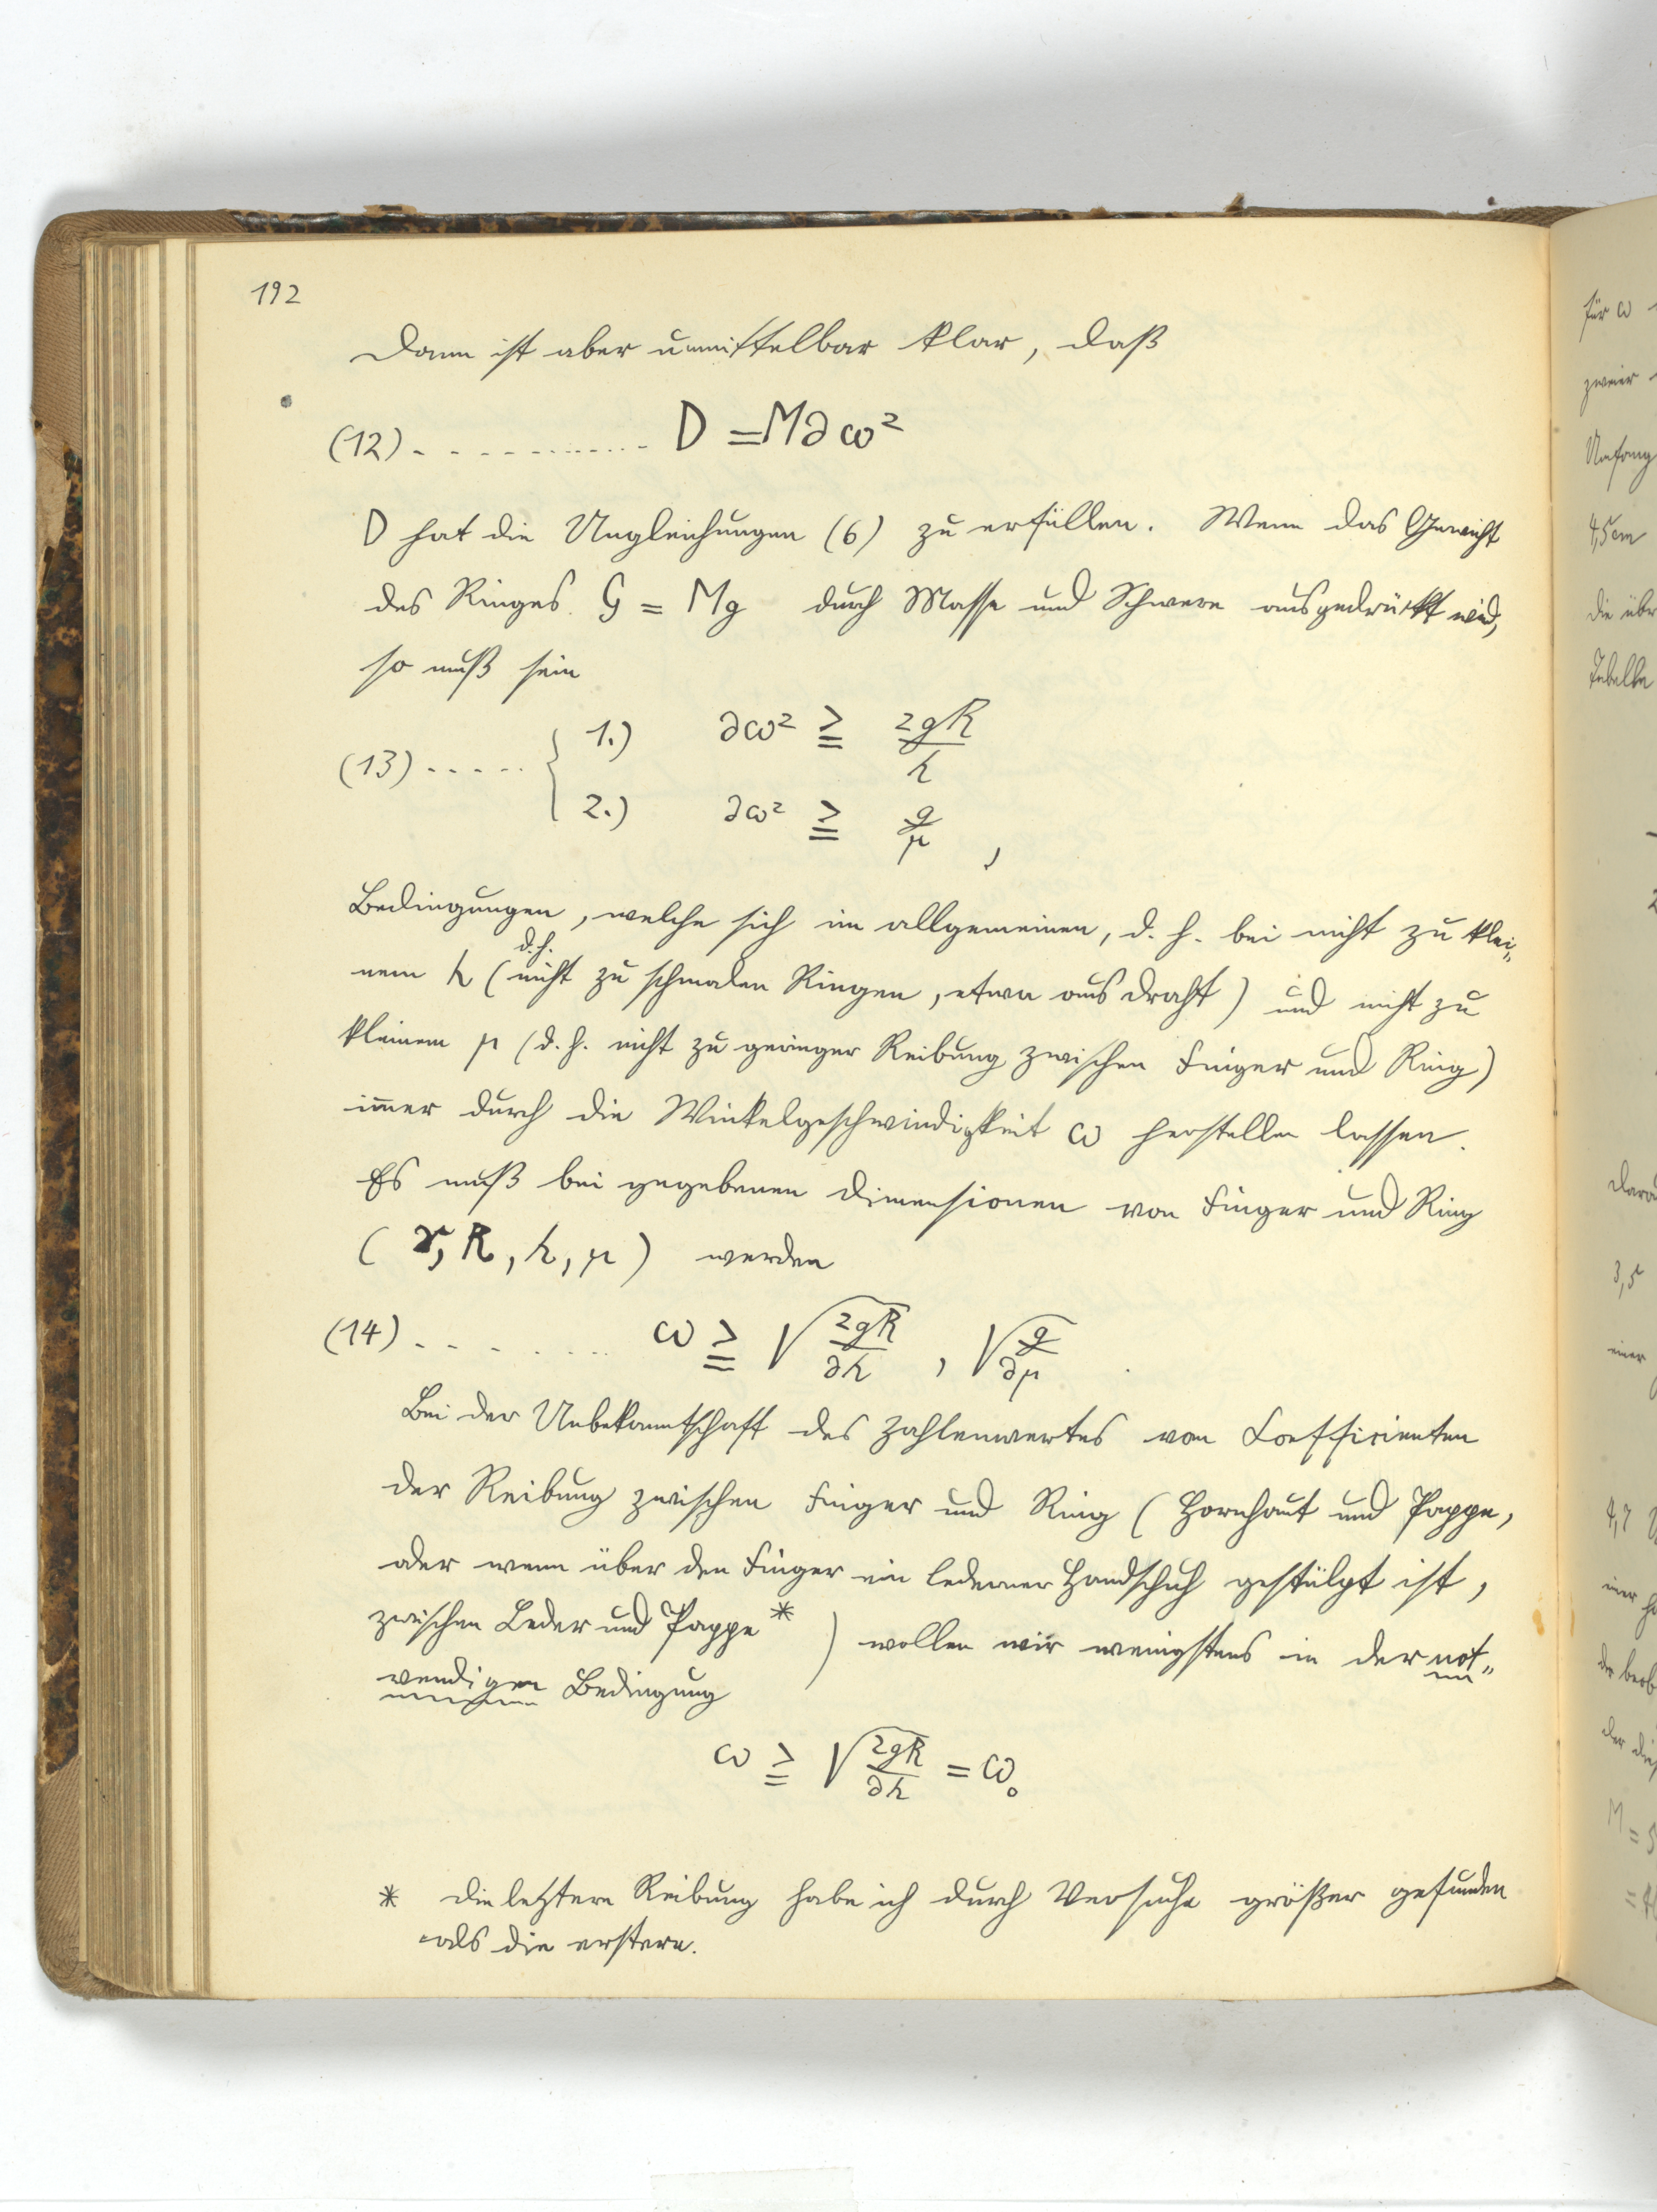 192
Dann ist aber unmittelbar klar, daß
(12) . . . . . . . . . . . . . D = M∂ω²
D hat die Ungleichungen (6) zu erfüllen. Wenn das Gewicht
des Ringes G = Mg durch Masse und Schwere ausgedrückt wird,
so muß sein
(13) . . . . . { 1.) ∂ω² ≧ 2gR/h
2.) ∂ω² ≧ g/μ ,
Bedingungen, welche sich im allgemeinen, d. h. bei nicht zu klei„
nem h (d.h. nicht zu schmalen Ringen, etwa aus Draht) und nicht zu
kleinem μ (d. h. nicht zu geringer Reibung zwischen Finger und Ring)
immer durch die Winkelgeschwindigkeit ω herstellen lassen.
Es muß bei gegebenen Dimensionen von Finger und Ring
(r, R, h, μ) werden
(14) . . . . . . . . ω ≧ √(2gR/∂h) , √(g/∂μ) .
Bei der Unbekanntschaft des Zahlenwertes vom Coefficienten
der Reibung zwischen Finger und Ring (Hornhaut und Pappe,
oder wenn über den Finger ein lederner Handschuh gestülpt ist,
zwischen Leder und Pappe *) wollen wir wenigstens in der not„
wendigen Bedingung
ω ≧ √(2gR/∂h) = ω₀
* Die letztere Reibung habe ich durch Versuche größer gefunden
als die erstere.
für ω
zweier
Umfang
4,5cm
die über
Tabelle
3,5
einer
4,7
M = 5